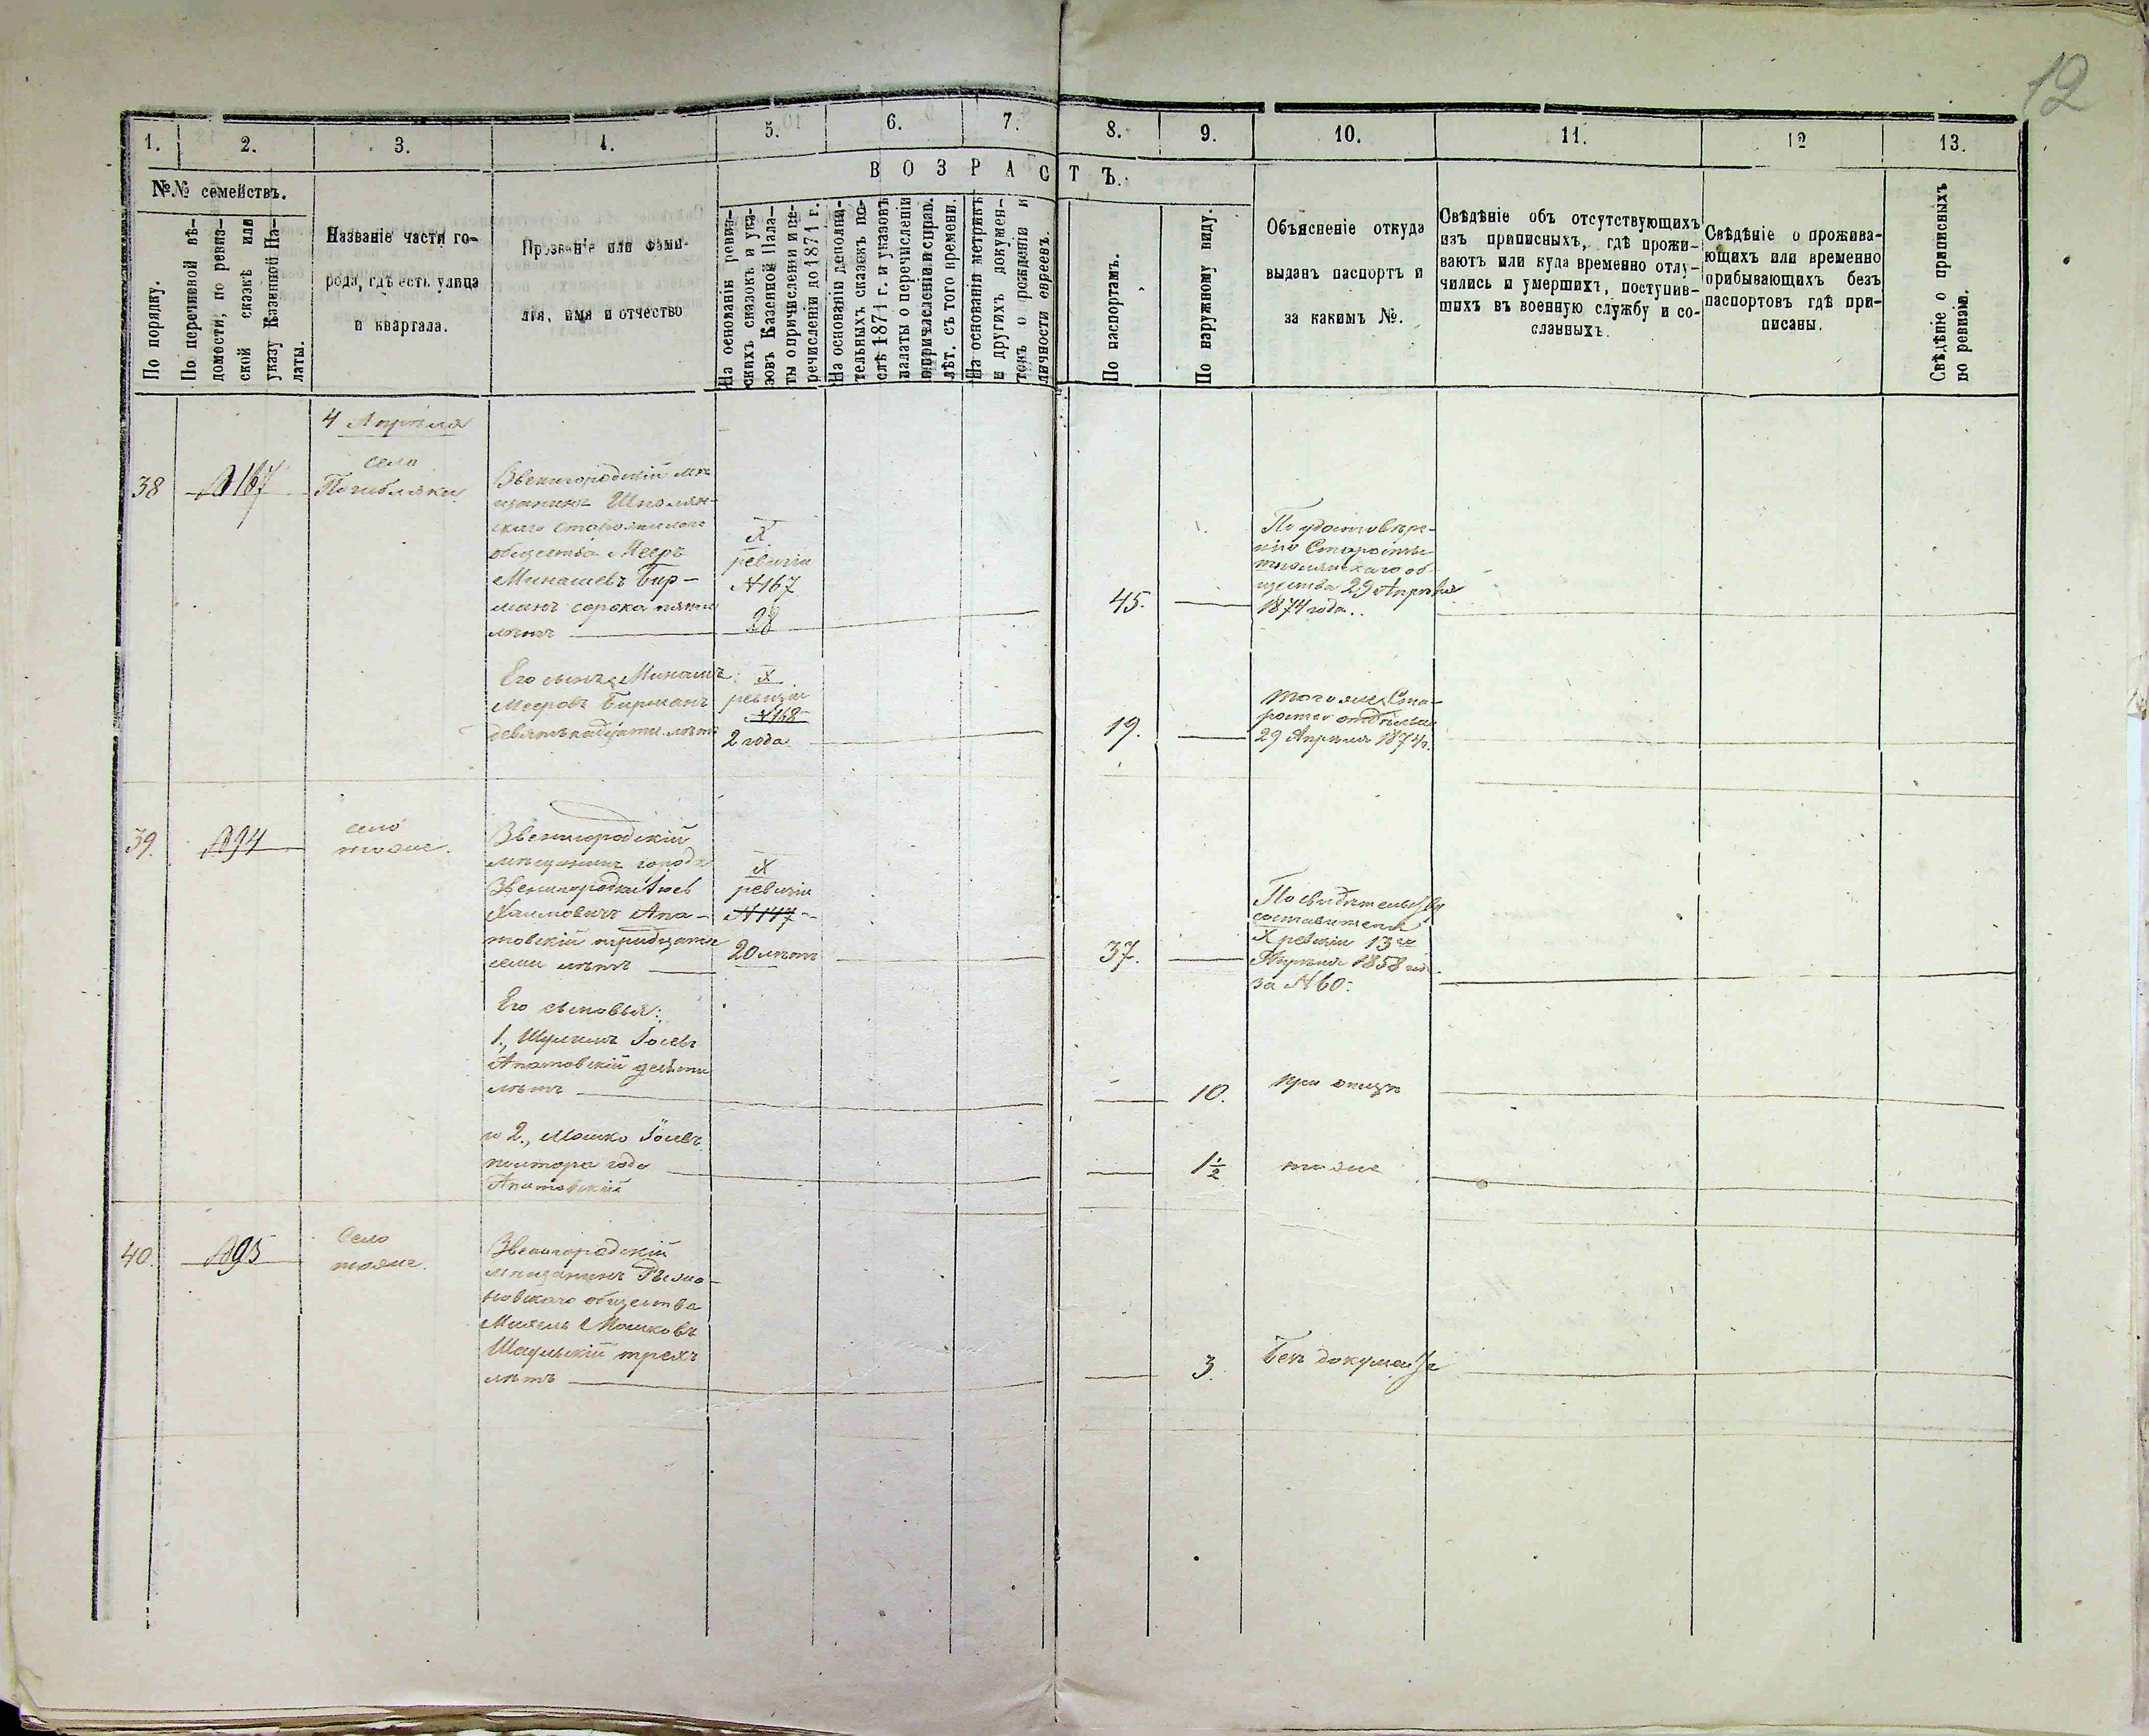 12
1. 2. 3. 4. 5. 6. 7. 8. 9. 10. 11. 12 13.
В О З Р А С Т Ъ.
№№ семействъ.
По порядку.
По перечневой вѣ-
домости, по ревиз-
ской сказкѣ или
указу Казенной Па-
латы.
Названіе части го-
рода, гдѣ есть улица
и квартала.
Прозваніе или фами-
лія, имя и отчество
На основаніи ревиз-
скихъ сказокъ и ука-
зовъ Казенной Пала-
ты о причисленіи и пе-
речисленіи до 1871 г.
На основаніи дополни-
тельныхъ сказокъ по-
слѣ 1871 г. и указовъ
палаты о перечисленіи
и причисленіи и справ.
лѣт. съ того времени.
На основаніи метрикъ
и другихъ докумен-
товъ о рожденіи и
личности евреевъ.
По паспортамъ.
По наружному виду.
Объясненіе откуда
выданъ паспортъ и
за какимъ №.
Свѣдѣніе объ отсутствующихъ
изъ приписныхъ, гдѣ прожи-
ваютъ или куда временно отлу-
чились и умершихъ, поступив-
шихъ въ военную службу и со-
сланныхъ.
Свѣдѣніе о прожива-
ющихъ или временно
прибывающихъ безъ
паспортовъ гдѣ при-
писаны.
Свѣдѣніе о приписныхъ
по ревизіи.
4 Апрѣля
38
№ 167
село
Погибляки
Звенигородскій мѣ
щанинъ Шполян-
скаго старожилаго
общества Мееръ
Минашевъ Бир-
манъ сорока пяти
лѣтъ
X
ревизіи
№ 167
28
45.
По удостовѣре-
нію Старосты
шполянскаго об-
щества 29 Апрѣля
1874 года.
Его сынъ Минашъ
Мееровъ Бирманъ
девятнадцати лѣтъ
X
ревизіи
№ 168
2 года
19.
Того же Ста-
росты
29 Апрѣля 1874 г.
39.
№ 94
село
тоже.
Звенигородскій
мѣщанинъ города
Звенигородки Іось
Хаимовичъ Апа-
товскій тридцати
семи лѣтъ
X
ревизіи
№ 117
20 лѣтъ
37.
По свидѣтельству
составителя
X ревизіи 13го
Апрѣля 1858 год
за № 60.
Его сыновья:
1., Шулимъ Іосевъ
Апатовскій десяти
лѣтъ
10.
при отцѣ
и 2., Мошко Іосевъ
полтора года
Апатовскій
1 1/2
тоже
40.
№ 95
Село
тоже.
Звенигородскій
мѣщанинъ
новскаго общества
Михель Мошковъ
Шаульскій трехъ
лѣтъ
3.
Безъ документа